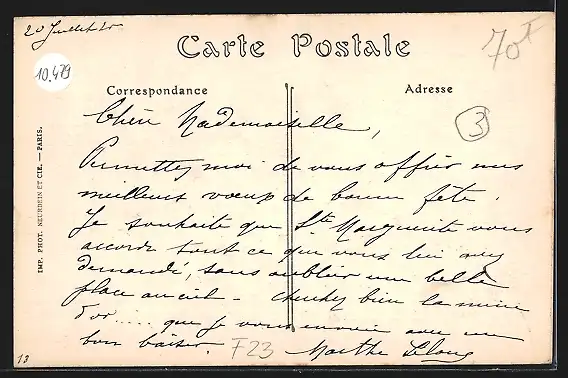 20 Juillet 20
Carte Postale
70F
10.479
Correspondance
Adresse
3
Chère Mademoiselle,
Permettez moi de vous offrir mes
meilleurs voeux de bonne fête.
Je souhaite que Ste Marguerite vous
accorde tout ce que vous lui avez
demandé, sans oublier une belle
place au ciel - cherchez bien la mine
d'or..... que je vous envoie avec un
bon baiser.
F23
Marthe
IMP. PHOT. NEURDEIN ET CIE. — PARIS.
13